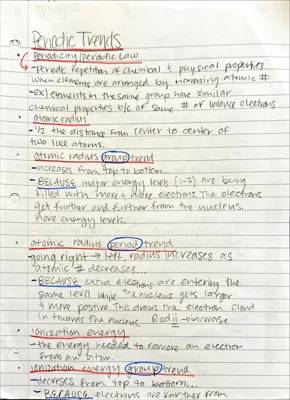 Periodic Trends
• Periodicity/Periodic Law
- Periodic repetition of chemical & physical properties
when elements are arranged by increasing atomic #
- ex) elements in the same group have similar
chemical properties b/c of same # of valence electrons
• atomic radius
- 1/2 the distance from center to center of
two like atoms.
• atomic radius group trend
- increases from top to bottom...
- BECAUSE major energy levels (1-7) are being
filled with more & more electrons. The electrons
get further and further from the nucleus.
more energy levels.
• atomic radius period trend
- going right → left, radius increases as
atomic # decreases...
- BECAUSE extra electrons are entering the
same level while the nucleus gets larger
& more positive. This draws the electron cloud
in towards the nucleus. Radii → increase
• ionization energy
- the energy needed to remove an electron
from an atom.
• ionization energy group trend
- decreses from top to bottom...
- BECAUSE electrons are farther from